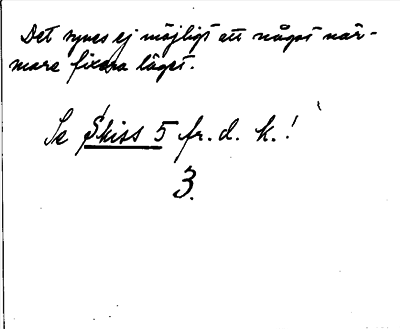 Det synes ej möjligt att något när-
mare fixera läget.
Se Skiss 5 fr. d. k.!
3.